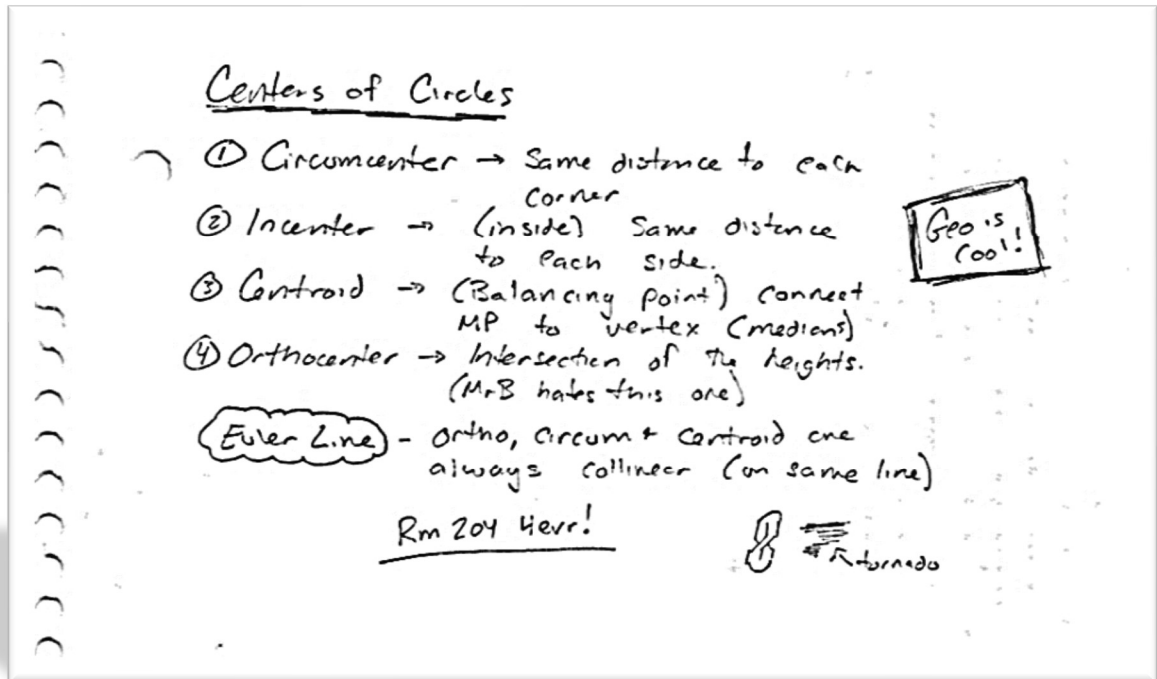 Centers of Circles
① Circumcenter → Same distance to each
corner
② Incenter → (inside) Same distance
to each side.
Geo is
Cool!
③ Centroid → (Balancing point) connect
MP to vertex (medians)
④ Orthocenter → Intersection of the heights.
(Mr B hates this one)
Euler Line - ortho, circum + centroid are
always collinear (on same line)
Rm 204 4evr!
tornado